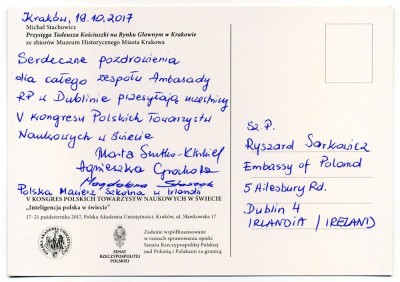 Kraków, 19.10.2017
Michał Stachowicz
Przysięga Tadeusza Kościuszki na Rynku Głownym w Krakowie
ze zbiorów Muzeum Historycznego Miasta Krakowa
Serdeczne pozdrowienia
dla całego zespołu Ambasady
RP w Dublinie przesyłają uczestnicy
V Kongresu Polskich Towarzystw
Naukowych w Świecie
Marta
Agnieszka
Magdalena
Polska Macierz Szkolna w Irlandii
V KONGRES POLSKICH TOWARZYSTW NAUKOWYCH W ŚWIECIE
„Inteligencja polska w świecie"
17–21 października 2017, Polska Akademia Umiejętności, Kraków, ul. Sławkowska 17
SENAT
RZECZYPOSPOLITEJ
POLSKIEJ
Zadanie współfinansowane
w ramach sprawowania opieki
Senatu Rzeczypospolitej Polskiej
nad Polonią i Polakami za granicą
Sz.P.
Ryszard Sarkowicz
Embassy of Poland
5 Ailesbury Rd.
Dublin 4
IRLANDIA / IRELAND)